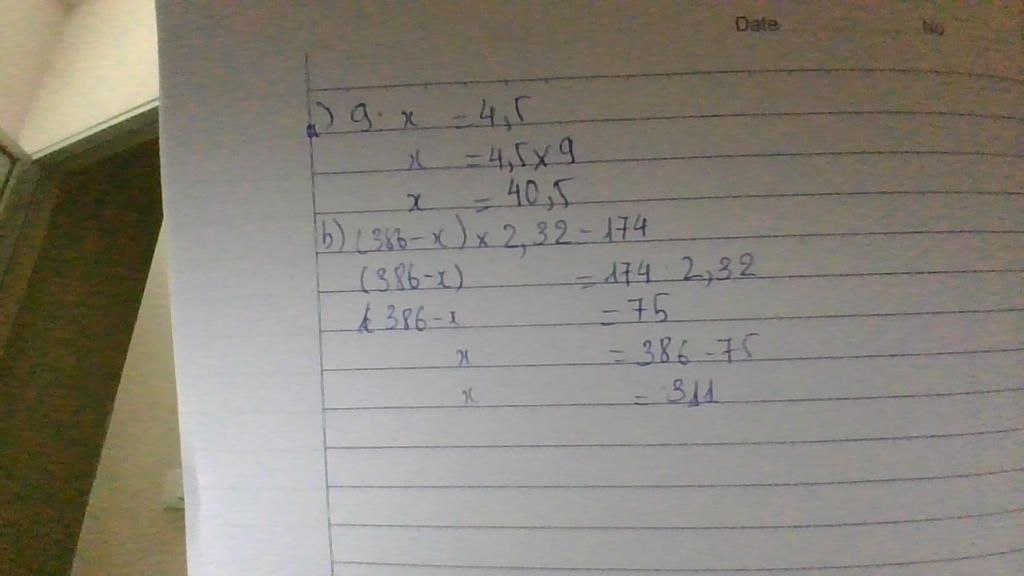 Date No
a) 9. x = 4,5
x = 4,5 x 9
x = 40,5
b) (386-x) x 2,32 = 174
(386-x) = 174 : 2,32
386-x = 75
x = 386 - 75
x = 311